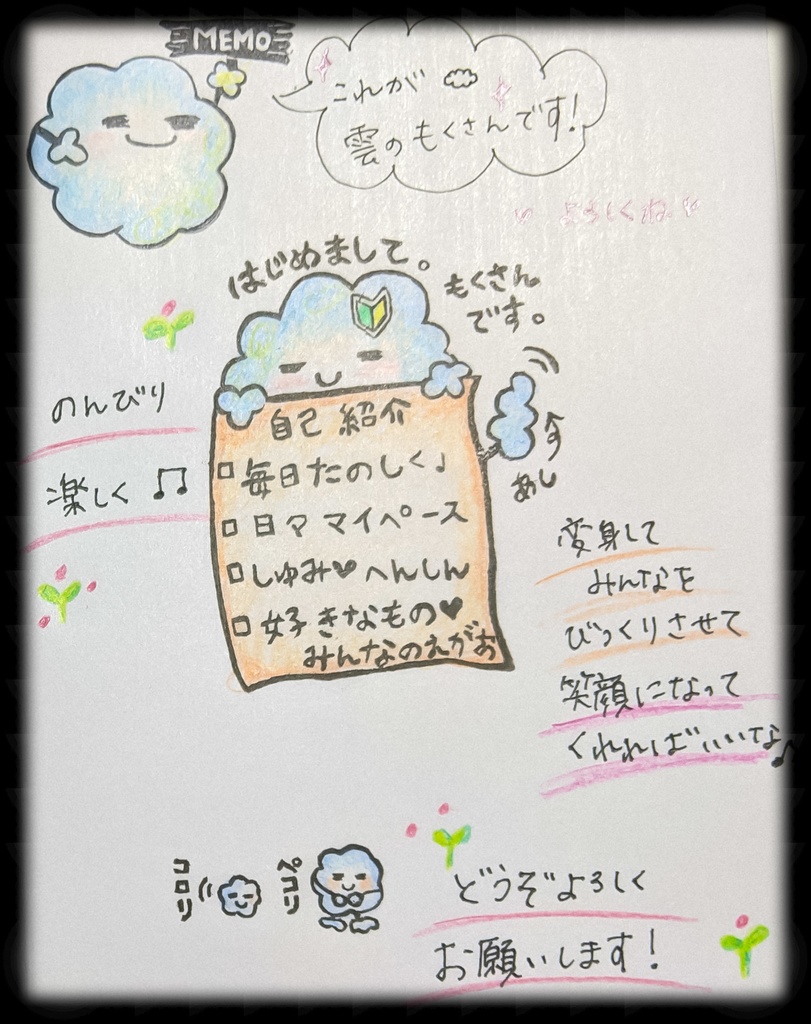 MEMO
これが
雲のもくさんです！
よろしくね
はじめまして。
もくさん
です。
のんびり
楽しく♫
自己紹介
□毎日たのしく♩
□日々マイペース
□しゅみ♥へんしん
□好きなもの♥
みんなのえがお
あし
変身して
みんなを
びっくりさせて
笑顔になって
くれればいいな♪
コロリ
ペコリ
どうぞよろしく
お願いします！